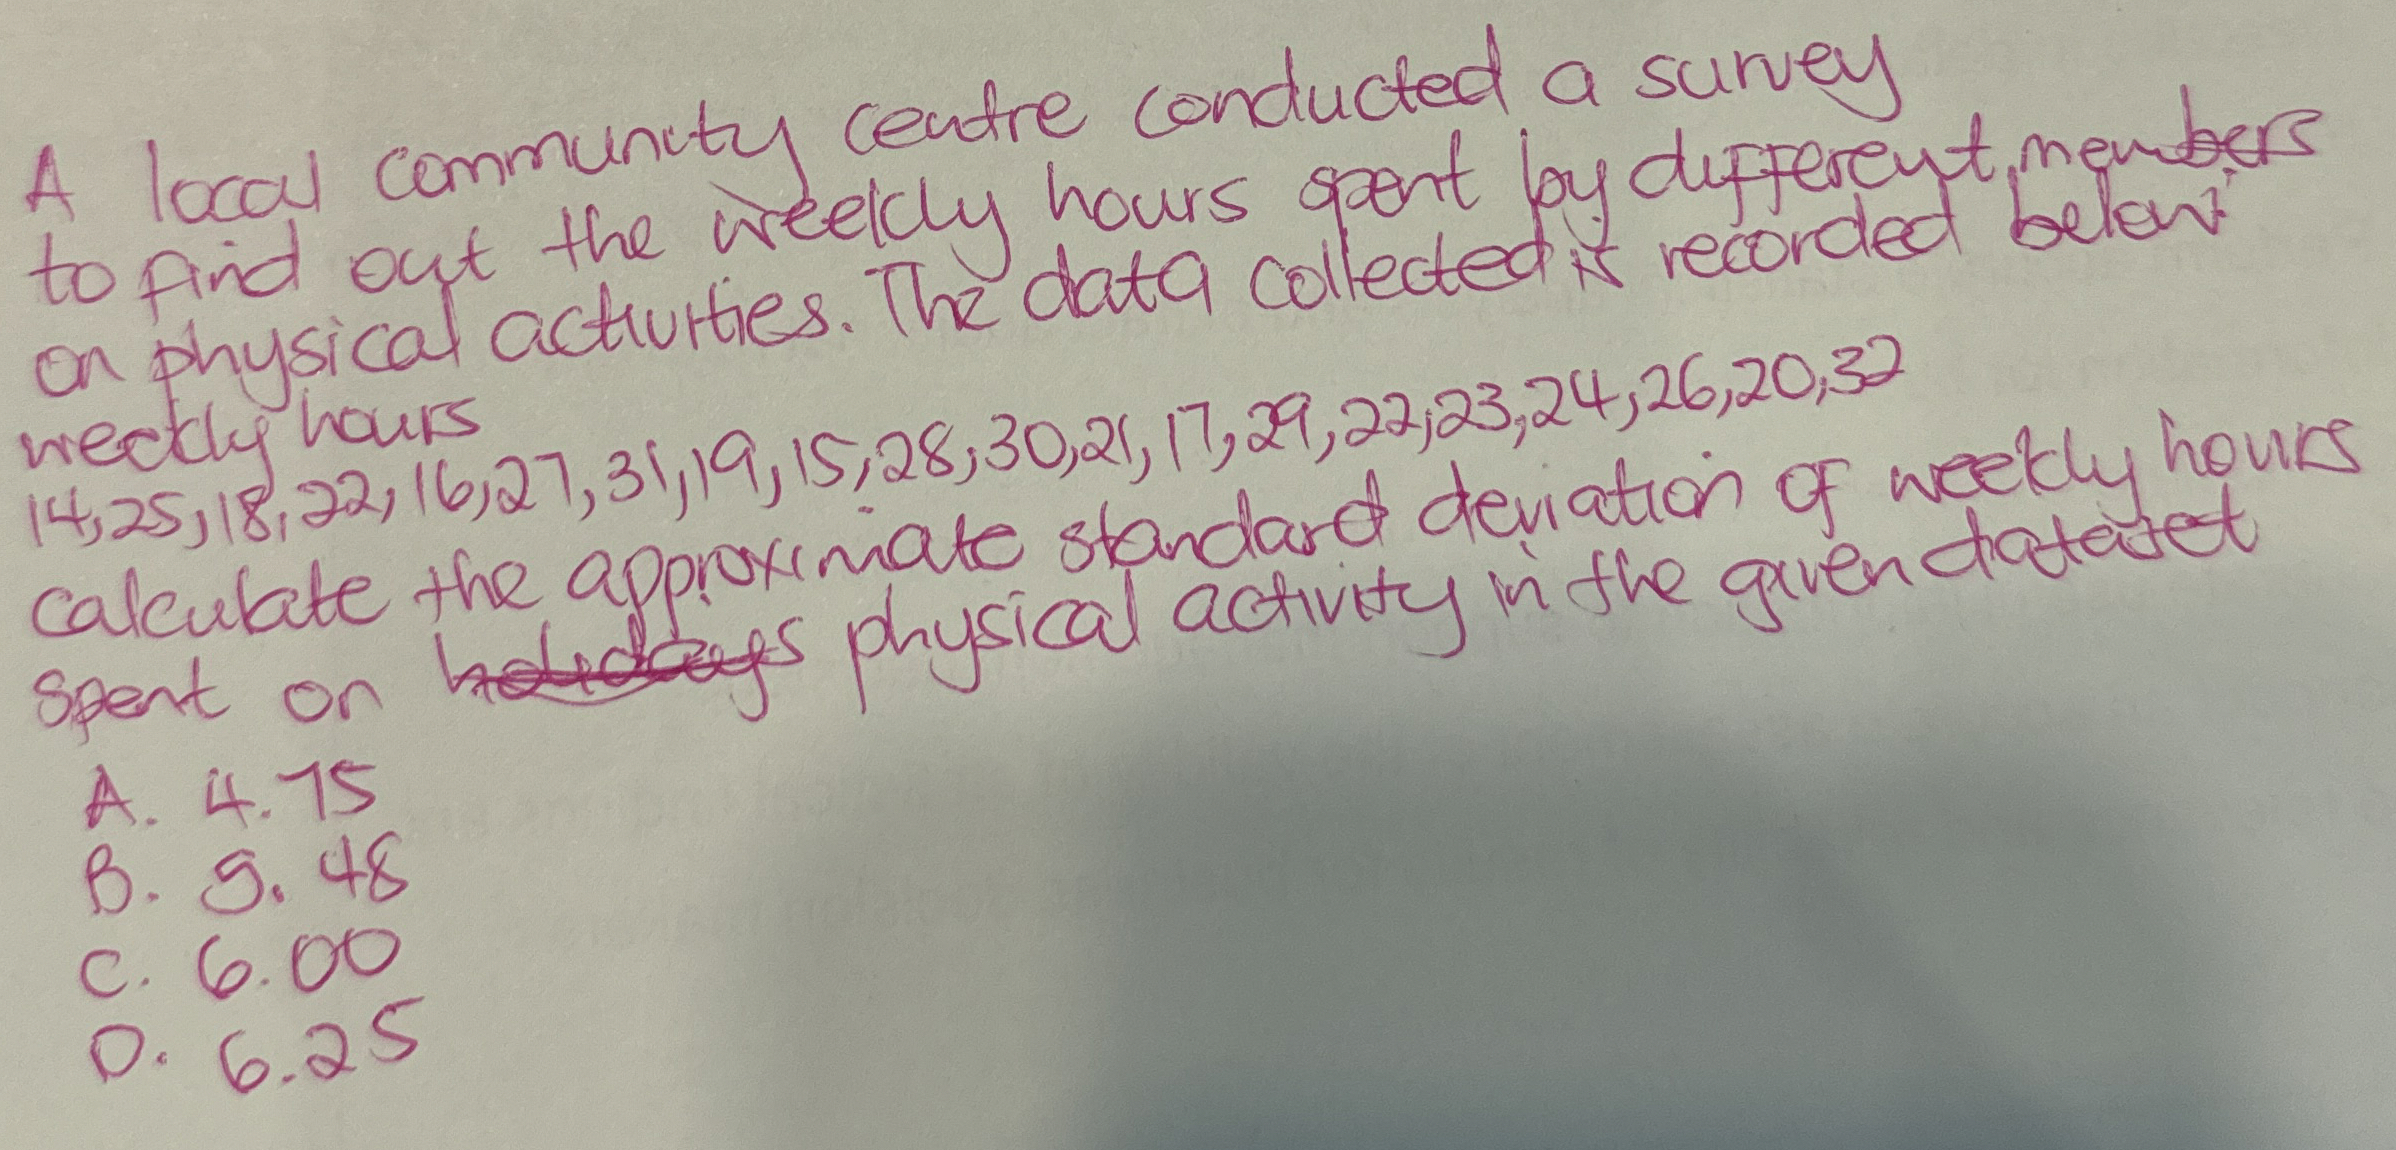 A local community centre conducted a survey
to find out the weekly hours spent by different members
on physical activities. The data collected is recorded below:
weekly hours
14,25,18,22,16,27,31,19,15,28,30,21,17,29,22,23,24,26,20,32
calculate the approximate standard deviation of weekly hours
spent on holidays physical activity in the given dataset
A. 4.75
B. 5.48
C. 6.00
D. 6.25